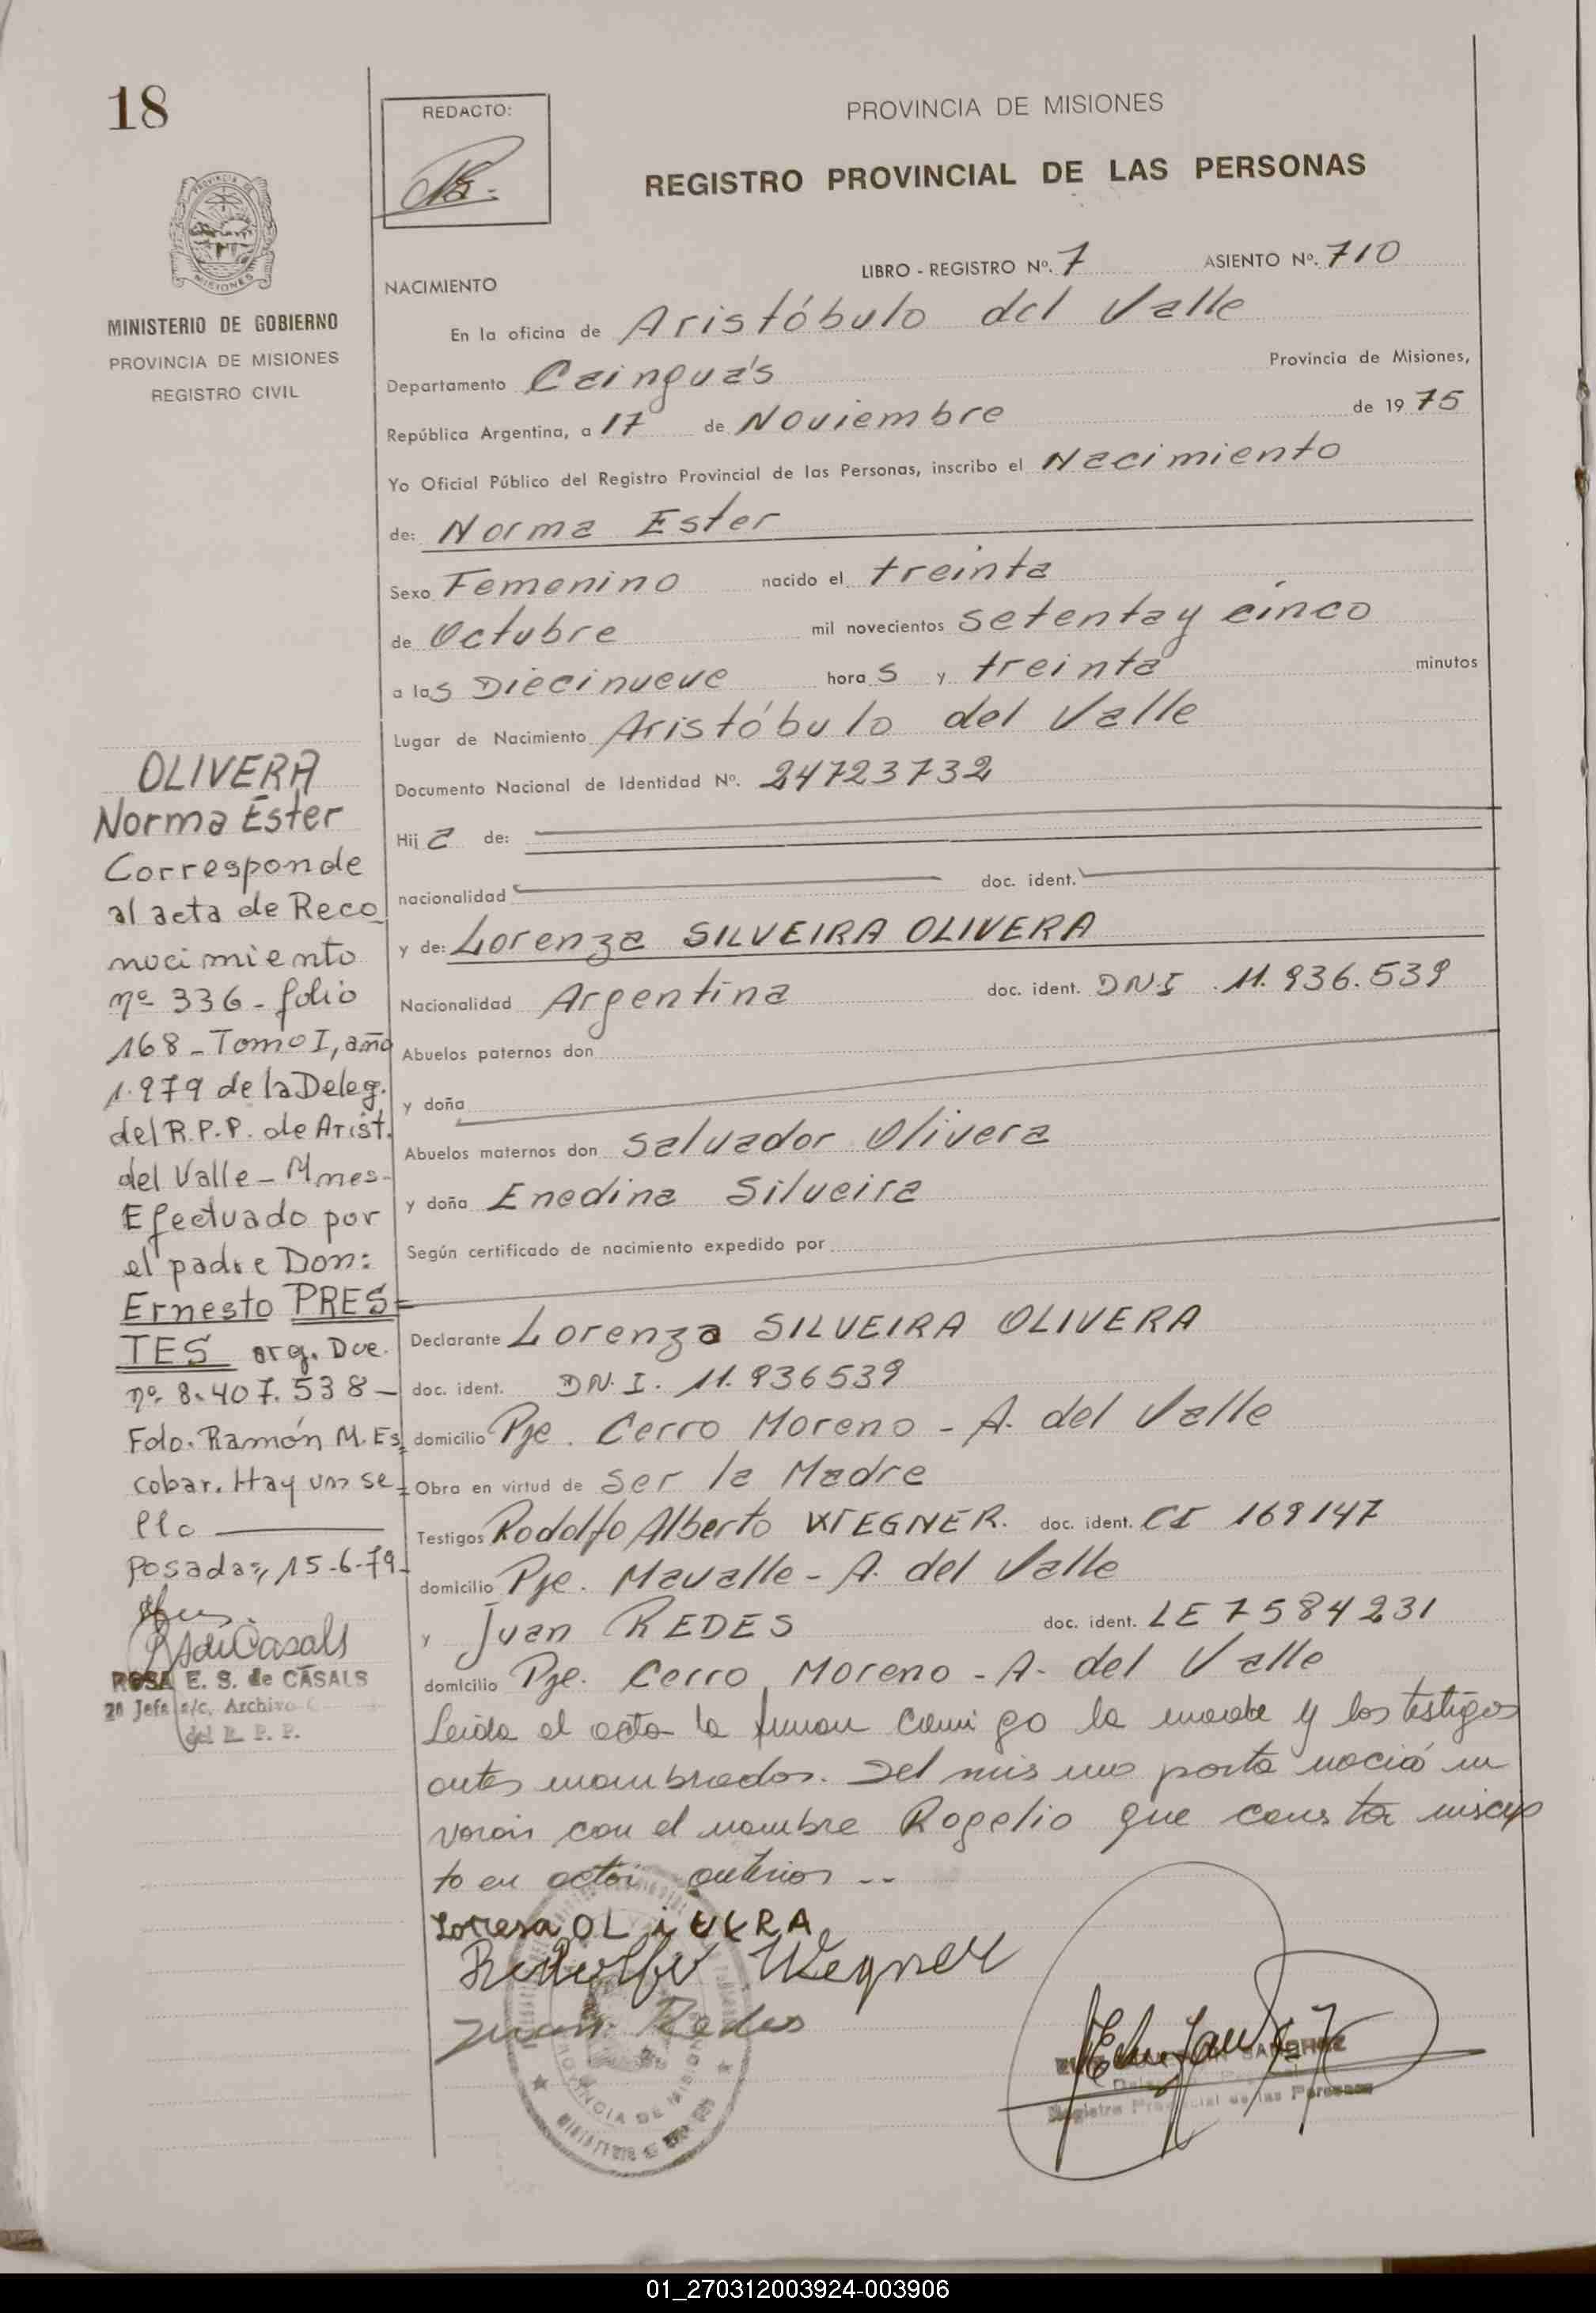 18
REDACTO:
PROVINCIA DE MISIONES
REGISTRO PROVINCIAL DE LAS PERSONAS
PROVINCIA DE
MISIONES
MINISTERIO DE GOBIERNO
PROVINCIA DE MISIONES
REGISTRO CIVIL
LIBRO - REGISTRO Nº. 7 ASIENTO Nº. 710
NACIMIENTO
En la oficina de Aristóbulo del Valle
Departamento Cainguás Provincia de Misiones,
República Argentina, a 17 de Noviembre de 1975
Yo Oficial Público del Registro Provincial de las Personas, inscribo el Nacimiento
de: Norma Ester
Sexo Femenino nacido el treinta
de Octubre mil novecientos setenta y cinco
a las Diecinueve horas y treinta minutos
Lugar de Nacimiento Aristóbulo del Valle
Documento Nacional de Identidad Nº. 24723732
Hija de:
nacionalidad doc. ident.
y de: Lorenza SILVEIRA OLIVERA
Nacionalidad Argentina doc. ident. DNI 11.936.539
Abuelos paternos don
y doña
Abuelos maternos don Salvador Olivera
y doña Enedina Silveira
Según certificado de nacimiento expedido por
Declarante Lorenza SILVEIRA OLIVERA
doc. ident. DN.I. 11.936539
domicilio Pje. Cerro Moreno - A. del Valle
Obra en virtud de ser la Madre
Testigos Rodolfo Alberto WEGNER. doc. ident. CI 169147
domicilio Pje. Mavalle - A. del Valle
y Juan REDES doc. ident. LE 7584231
domicilio Pje. Cerro Moreno - A. del Valle
Leida el acta la firman conmigo la madre y los testigos
antes nombrados. Del mismo parto nació un
varón con el nombre Rogelio que consta inscrip
to en acta anterior --
OLiVERA
Rodolfo Wegner
Juan Redes
SANCHEZ
Registro Provincial de las Personas
OLIVERA
Norma Ester
Corresponde
al acta de Reco
nocimiento
nº 336 - folio
168 - Tomo I, año
1.979 de la Deleg.
del R.P.P. de Arist.
del Valle - Mnes-
Efectuado por
el padre Don:
Ernesto PRES=
TES arg. Dce.
nº. 8.407.538 -
Fdo. Ramón M. Es=
cobar. Hay un se=
llo
Posadas, 15-6-79-
ROSA E. S. de CASALS
2º Jefe a/c. Archivo
del R. P. P.
PROVINCIA DE MISIONES
01_270312003924-003906